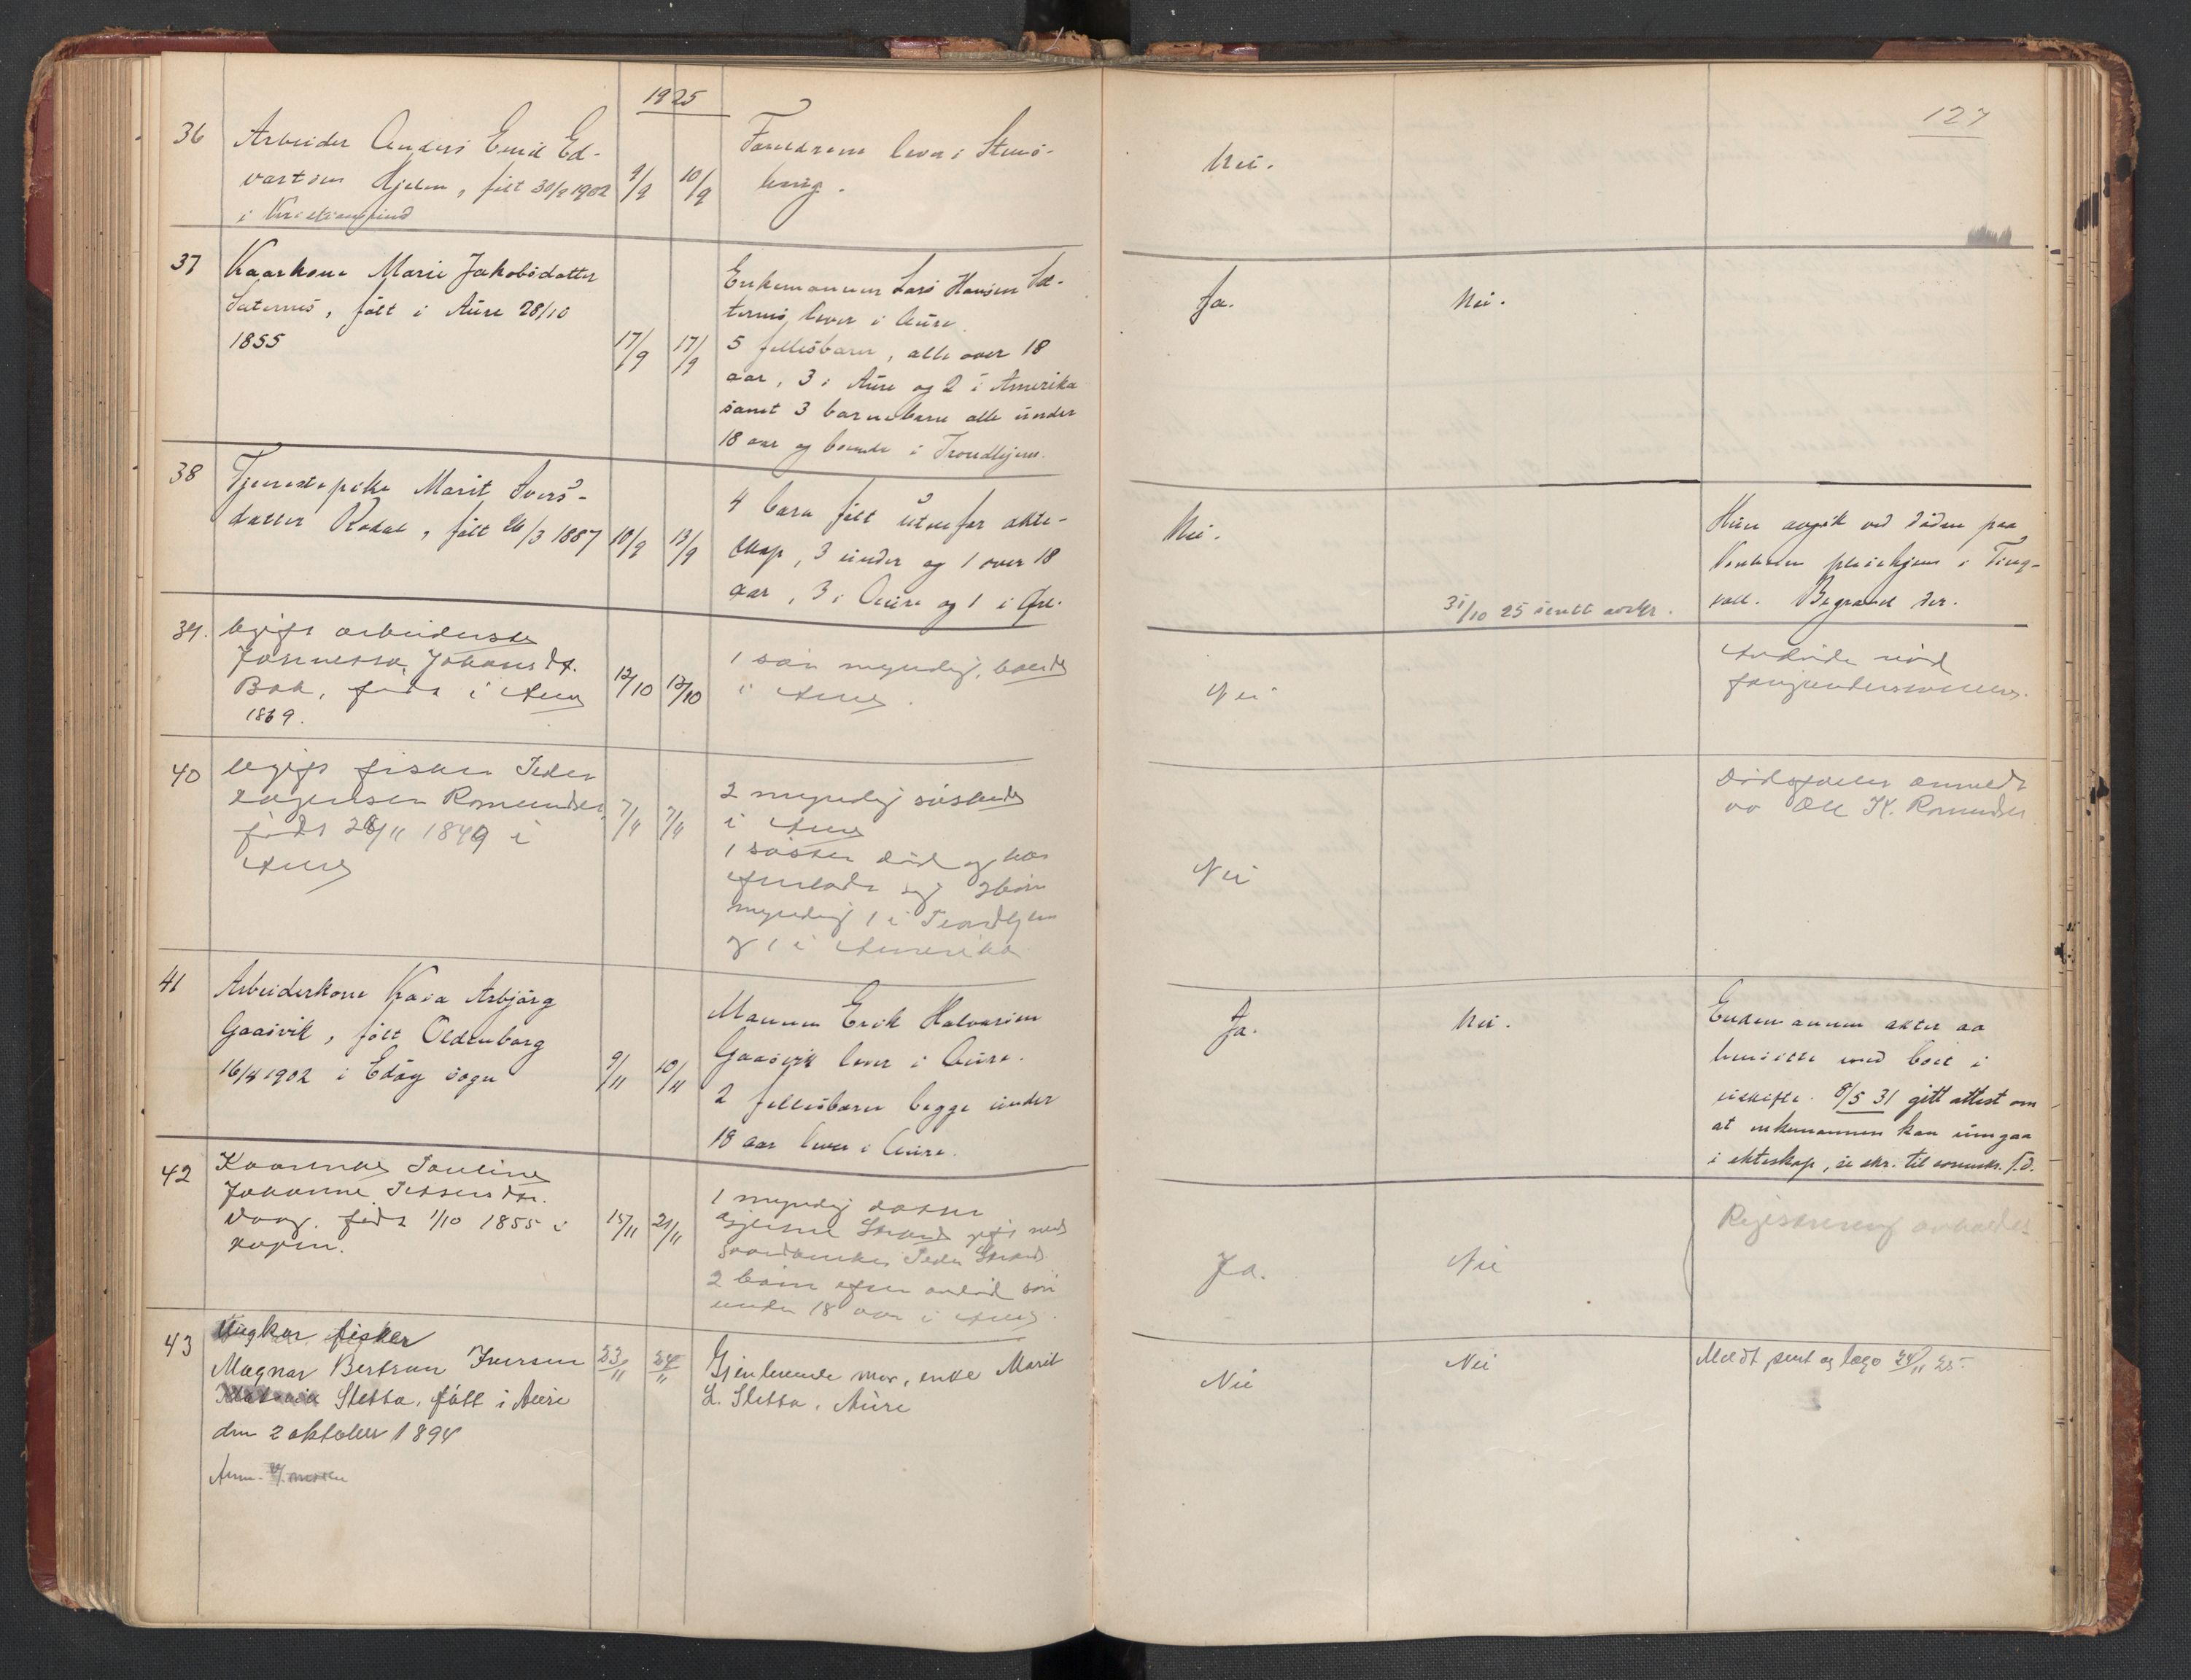 1925
127
36 Arbeider Anders Emil Ed-
vartsen Hjelm, født 30/9 1902
i Kristiansund
9/9 10/9
Foreldrene lever i Stens-
haug.
Nei.
37 Kaarkone Marie Jakobsdatter
Sæternes, født i Aure 28/10
1855
17/9 17/9
Enkemannen Lars Hansen Sæ-
ternes, lever i Aure.
5 fellesbarn, alle over 18
aar, 3 i Aure og 2 i Amerika
samt 3 barnebarn alle under
18 aar og boende i Trondhjem.
Ja.
Nei.
38 Tjenestepike Marit Ivers-
datter Rodal, født 26/3 1887
10/9 13/9
4 barn født utenfor ekte-
skap, 3 under og 1 over 18
aar, 3 i Aure og 1 i
Nei.
31/10 25 sendt
Hun avgik ved døden paa
pleiehjem i Ting-
voll. Begravet der.
39. Ugift arbeiderske
Johansdt.
Bak, født i Aure
1869.
12/10 12/10
1 søn myndig, boende
i Aure.
Nei
40 Ugift fisker Peder
Romundset,
født 26/11 1849 i
Aure
7/11 7/11
2 myndig søskende
i Aure
1 søster død og har
efterladt sig 2 børn
myndig 1 i Trondhjem
og 1 i Amerika
Nei
Dødsfallet anmeldt
av Ole K. Romundset
41 Arbeiderkone Kaia Asbjørg
Gaasvik, født Oldenborg
16/4 1902 i Edøy sogn
9/11 10/11
Mannen Erik Halvorsen
Gaasvik lever i Aure.
2 fellesbarn begge under
18 aar lever i Aure.
Ja.
Nei.
Enkemannen akter aa
hensitte med boet i
uskifte. 8/5 31 gitt attest om
at enkemannen kan inngaa
i ekteskap, se skr. til sorenskr. s.d.
42 Kaarenke Pauline
Johanne
Vaag. født 1/10 1855 i
15/11 21/11
1 myndig datter
gift med
gaardbruker Peder Strand
2 børn efter avdød søn
under 18 aar i Aure.
Ja.
Nei
Registrering avholdes
43 Ungkar fisker
Magnar Bertran Iversen
Sletta, født i Aure
den 2 oktober 1894
Anm. v/ moren
23/11 24/11
Gjenlevende mor, enke Marit
L. Sletta, Aure
Nei
Nei
Meldt
24/11 25.